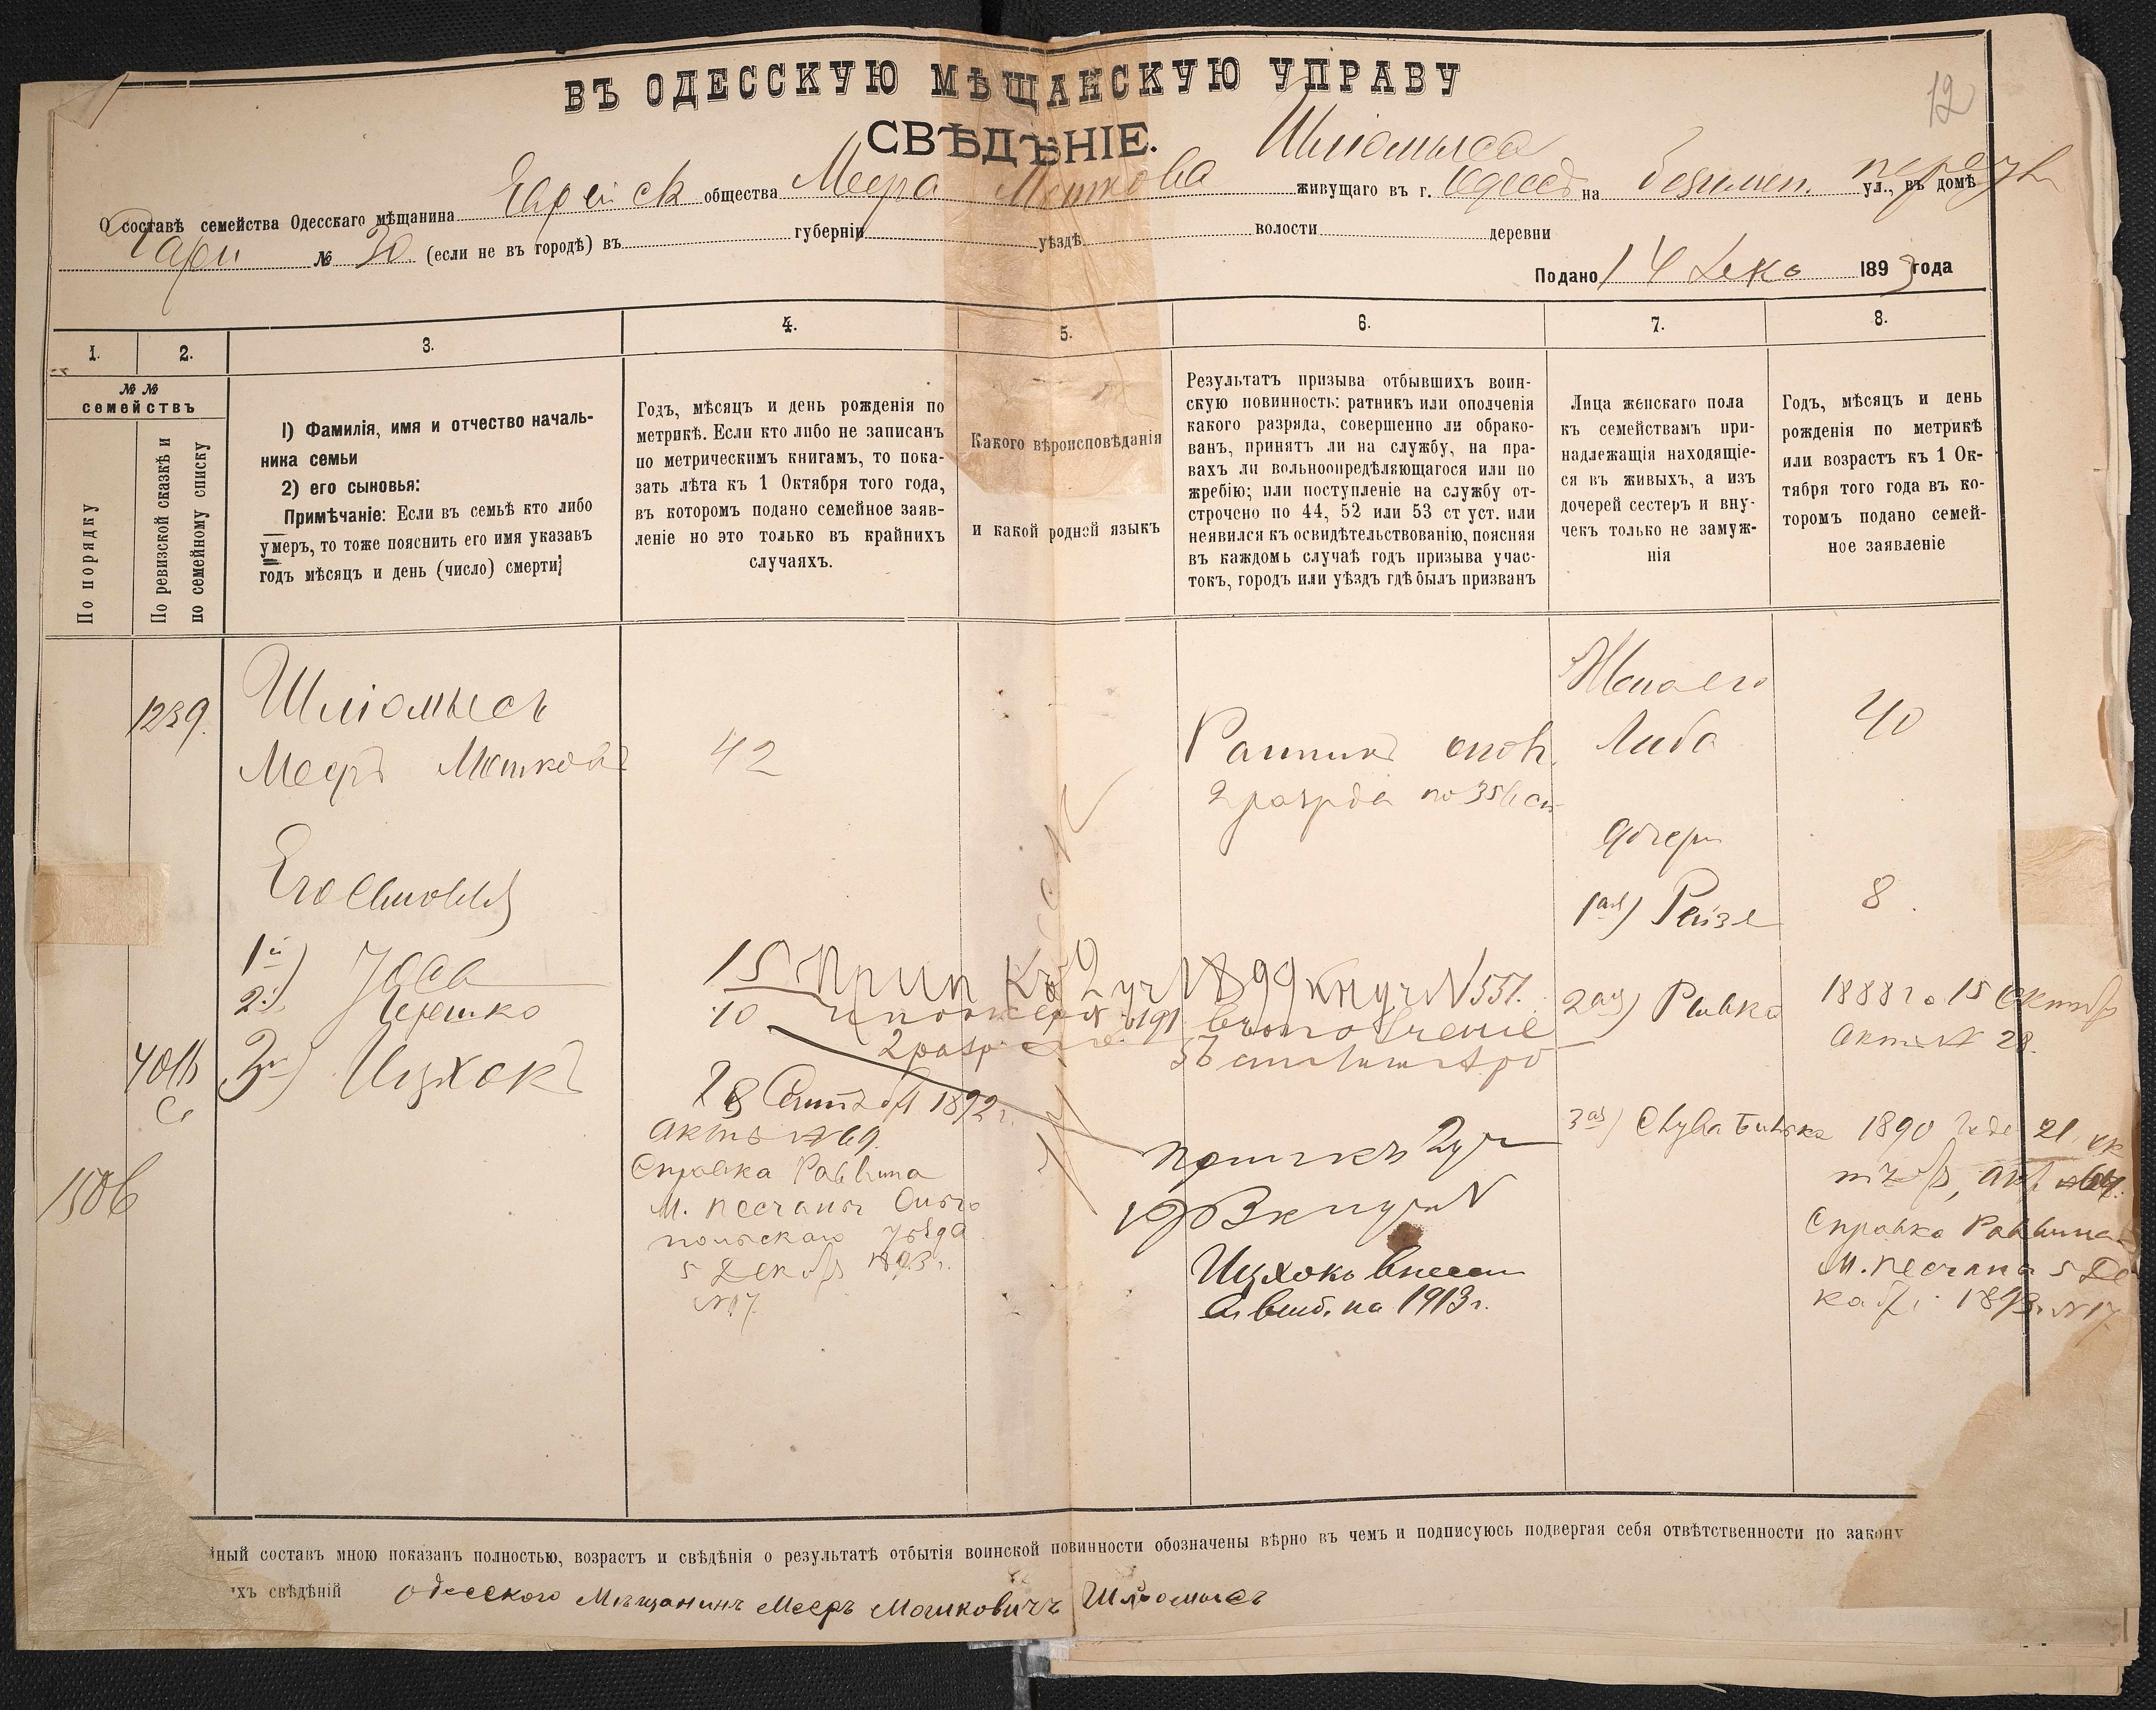 12
ВЪ ОДЕССКУЮ МѢЩАНСКУЮ УПРАВУ
СВѢДѢНІЕ.
О составѣ семейства Одесскаго мѣщанина Еврейск общества Меера Мошкова Шліомыса живущаго въ г. Одессѣ на ул., въ домѣ
№ 30 (если не въ городѣ) въ губерніи уѣздѣ волости деревни
Подано 14 Дека 1893 года
1. 2. 3. 4. 5. 6. 7. 8.
№ №
семействъ
По порядку
По ревизской сказкѣ и
по семейному списку
1) Фамилія, имя и отчество началь-
ника семьи
2) его сыновья:
Примѣчаніе: Если въ семьѣ кто либо
умеръ, то тоже пояснить его имя указавъ
годъ мѣсяцъ и день (число) смерти;
Годъ, мѣсяцъ и день рожденія по
метрикѣ. Если кто либо не записанъ
по метрическимъ книгамъ, то пока-
зать лѣта къ 1 Октября того года,
въ которомъ подано семейное заяв-
леніе но это только въ крайнихъ
случаяхъ.
Какого вѣроисповѣданія
и какой родной языкъ
Результатъ призыва отбывшихъ воин-
скую повинность: ратникъ или ополченія
какого разряда, совершенно ли обрако-
ванъ, принятъ ли на службу, на пра-
вахъ ли вольноопредѣляющагося или по
жребію; или поступленіе на службу от-
строчено по 44, 52 или 53 ст уст. или
неявился къ освидѣтельствованію, поясняя
въ каждомъ случаѣ годъ призыва учас-
токъ, городъ или уѣздъ гдѣ былъ призванъ
Лица женскаго пола
къ семействамъ при-
надлежащія находящіе-
ся въ живыхъ, а изъ
дочерей сестеръ и вну-
чекъ только не замуж-
нія
Годъ, мѣсяцъ и день
рожденія по метрикѣ
или возрастъ къ 1 Ок-
тября того года въ ко-
торомъ подано семей-
ное заявленіе
1239.
Шліомысъ
Мееръ Мошковъ
42
Ратникъ опол.
2 разряда по
Жена его
Либа
40
Его сыновья
дочери
1ая) Рейзе
8
1й)
15 Прип къ 2 уч 1899 кн уч N 551.
2й) Гершко
10
въ ополченіе
2 разр.
2ая) Ривка
1888 го 15 Октяб
Актъ № 28.
3й) Ицхокъ
28 Сентяб 1892 г.
Актъ № 69.
Справка Раввина
М. Песчаны Ольго
польскаго уѣзда
5 Декаб 1893 г.
№ 17.
1506
Припис къ 2 уч
Ицхокъ внесенъ
на 1913 г.
3ая)
1890 года 21 ок
тяб, акт №
Справка Раввина
М. Песчана 5 Де
каб. 1893 г. № 17
йный составъ мною показанъ полностью, возрастъ и свѣдѣнія о результатѣ отбытія воинской повинности обозначены вѣрно въ чемъ и подписуюсь подвергая себя отвѣтственности по закону
ихъ свѣдѣній Одесского Мѣщанинъ Мееръ Мошковичъ Шліомысъ